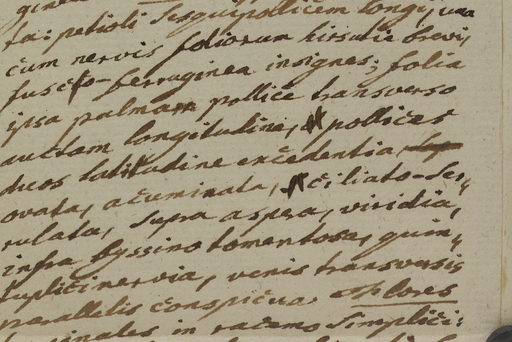 ta: petioli Sesquipollicem longi, una
cum nervis foliorum hirsutie brevi,
fusco-ferruginea insignes; folia
ipsa palmam pollice transverso
auctam longitudine, pollices
duos latitudine excedentia,
ovata, acuminata, ciliato-ser,,
rulata, supra aspera, viridia,
infra byssino tomentosa, quin,,
tuplicinervia, venis transversis
parallelis conspicua. Flores
in racemo simplici: